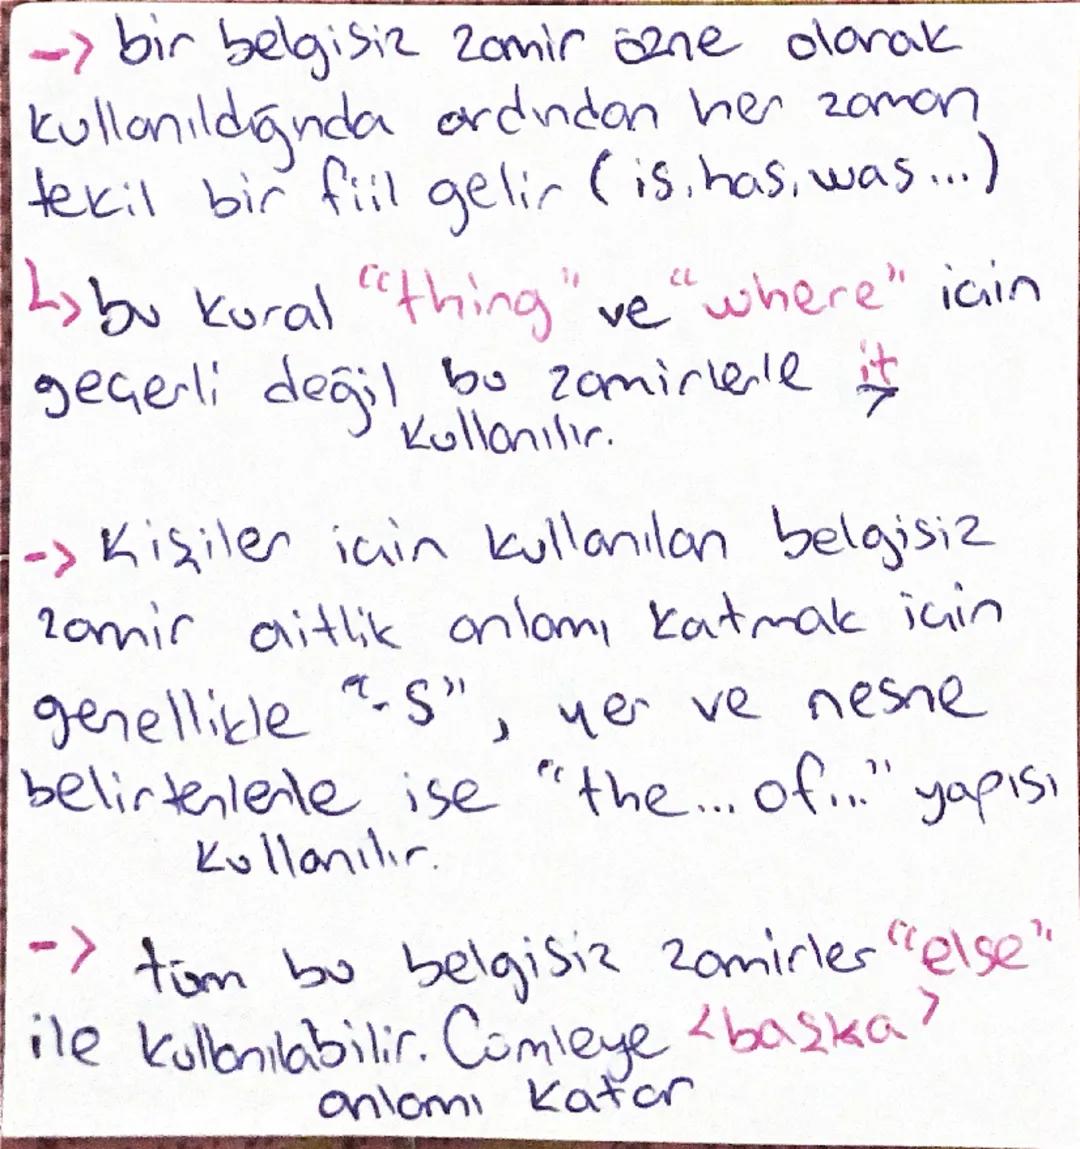 -> bir belgisiz zamir özne olarak
kullanıldığında ardından her zaman
tekil bir fiil gelir (is, has, was...)
↳ bu kural "thing" ve "where" için
geçerli değil bu zamirlerle it
kullanılır.
-> Kişiler için kullanılan belgisiz
zamir aitlik anlamı katmak için
genellikle "-s", yer ve nesne
belirtenlerle ise "the... of..." yapısı
kullanılır.
-> tüm bu belgisiz zamirler "else"
ile kullanılabilir. Cümleye <başka>
anlamı katar